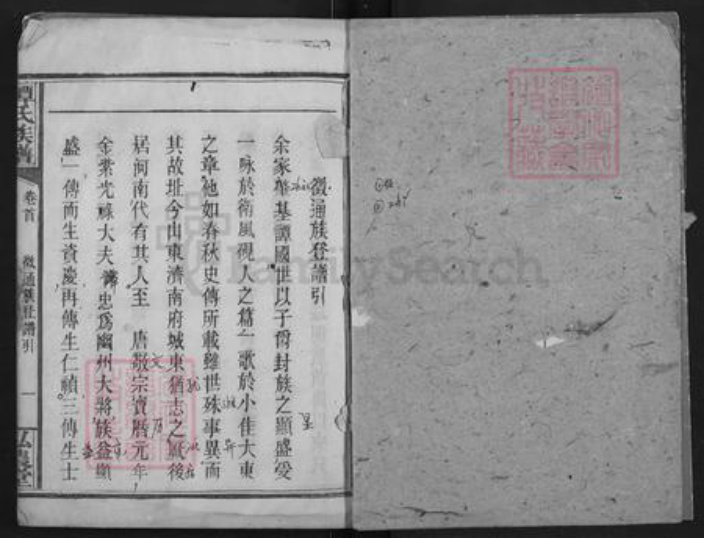 徵通族登譜引
余家肇基譚國世以子爵封族之顯盛爰
一咏於衛風碩人之篇一歌於小雅大東
之章他如春秋史傳所載雖世殊事異而
其故址今山東濟南府城東猶志之厥後
居河南代有其人至 唐敬宗寶曆元年
金紫光祿大夫 忠爲幽州大將族益顯
盛一傳而生資慶再傳生仁禎三傳生士
譚氏族譜
卷首
徵通族 譜引
一
弘農堂
FamilySearch